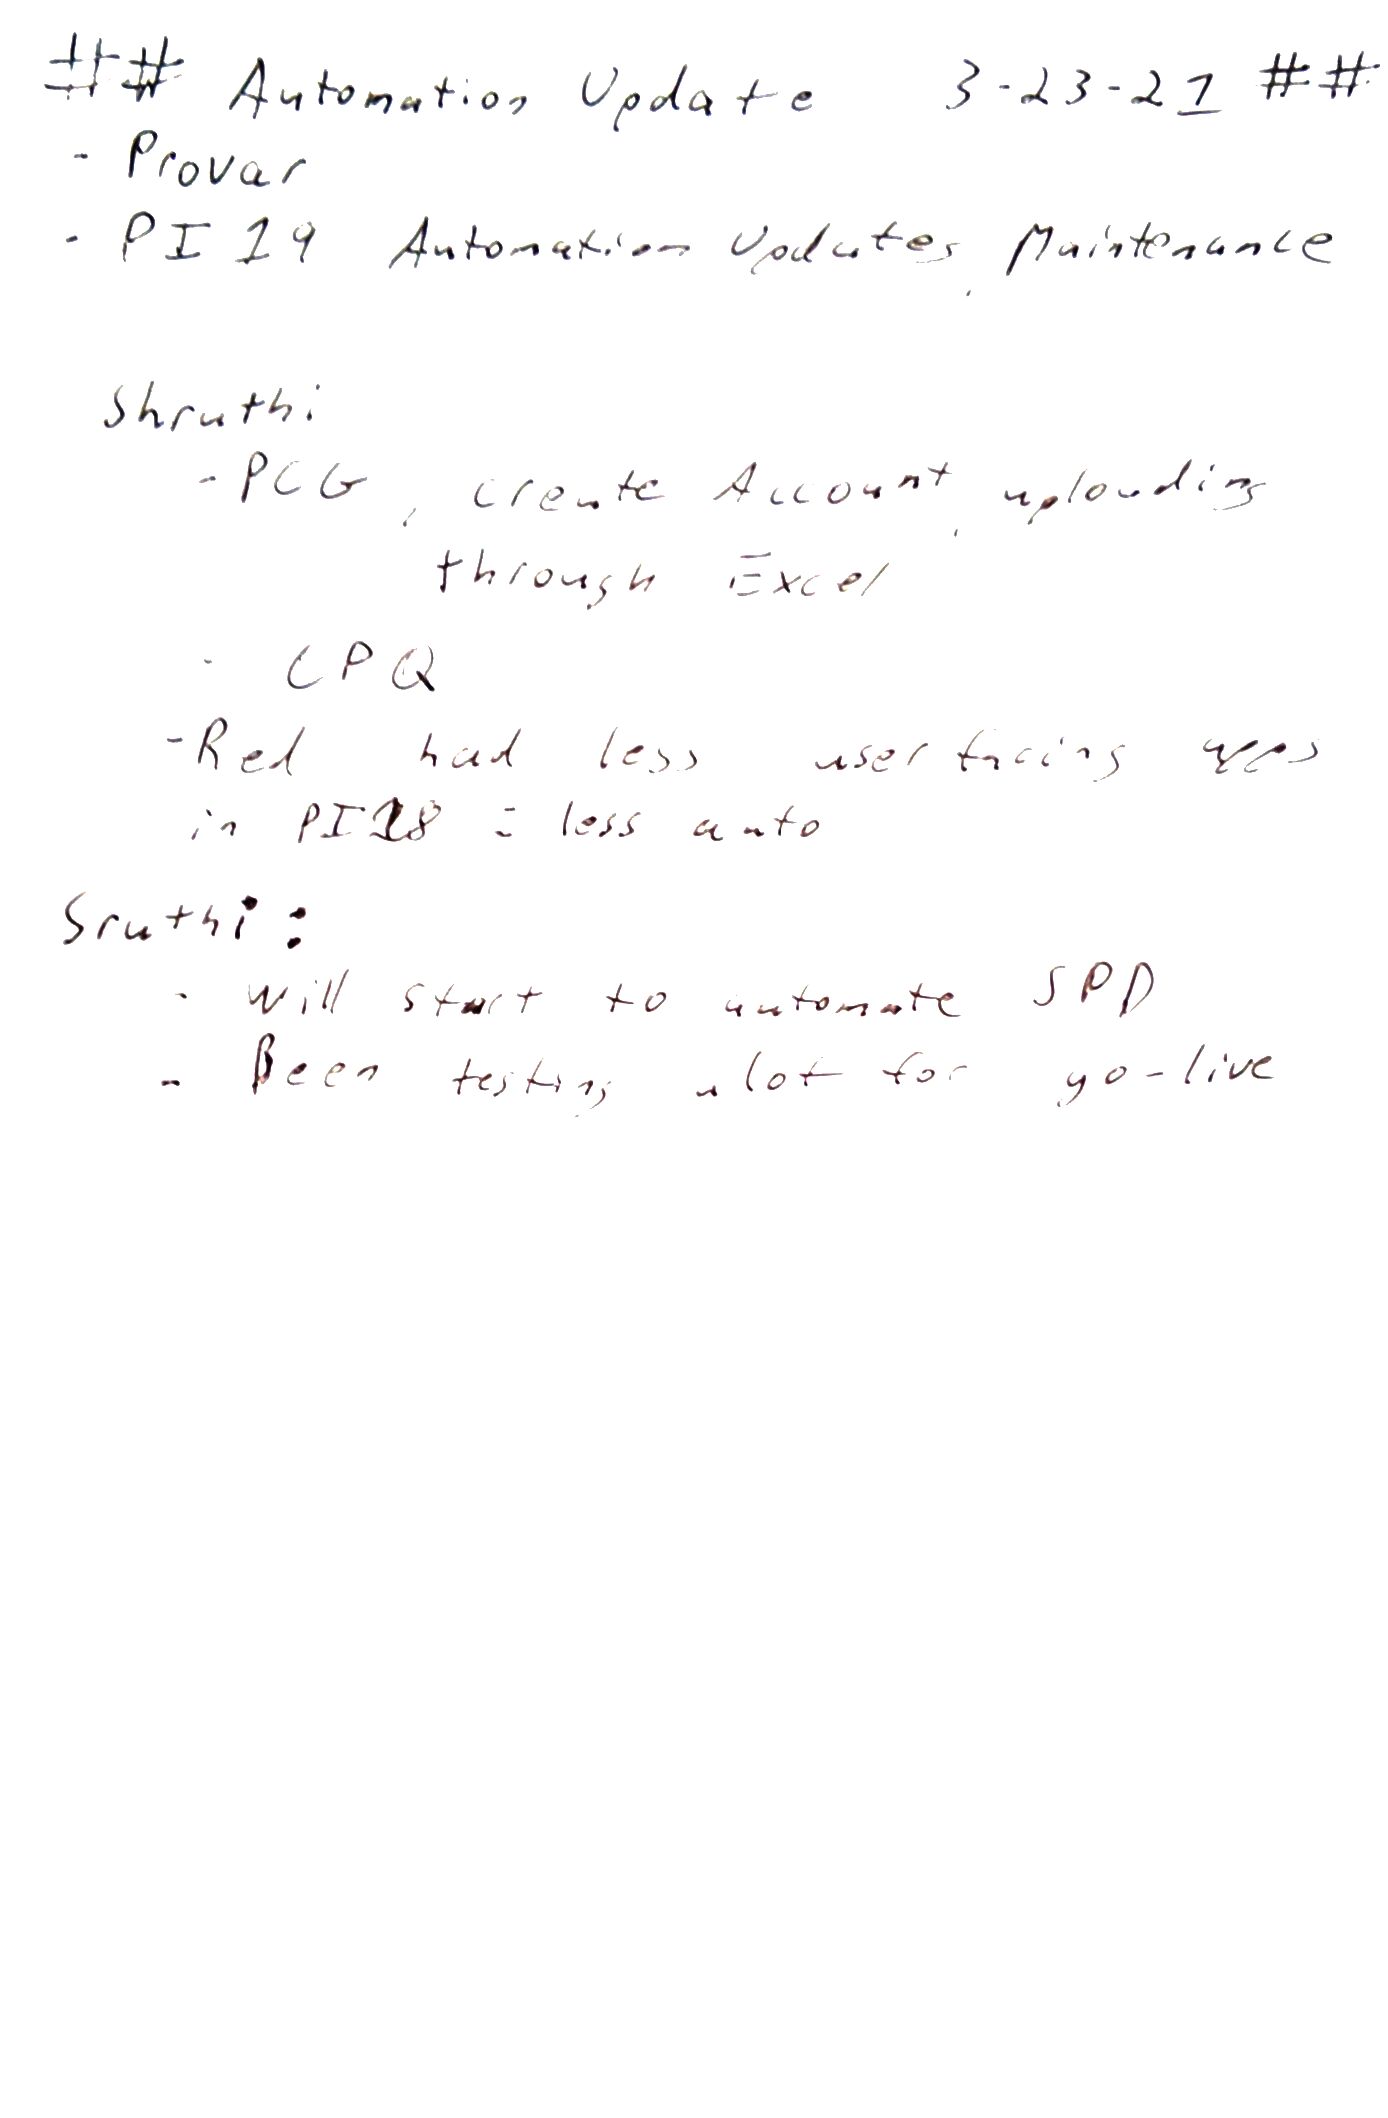 ## Automation Update 3-23-21 ##
- Provar
- PI 19 Automation Updates, Maintenance
Shruthi
- PCG, create Account, uploading
through Excel
- CPQ
- Red had less user facing apps
in PI18 = less auto
Sruthi:
- Will start to automate SPD
- Been testing alot for go-live